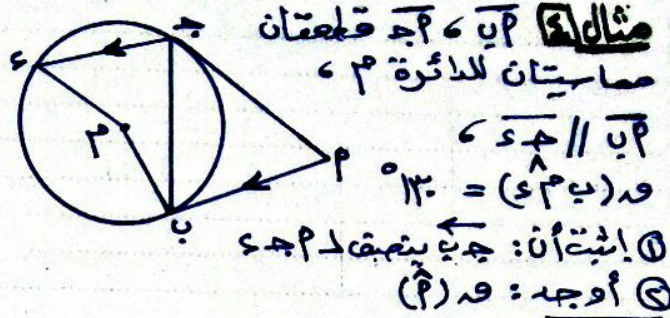 مثال ٤ أب ، أجـ قطعتان
مماسيتان للدائرة م ،
أب // جـ ء ،
ق(ب م ء) = ١٣٠°
① إثبت أن: جـ ب ينصف ∠ أ جـ ء
② أوجد: ق(أ)
جـ
ء
م
أ
ب